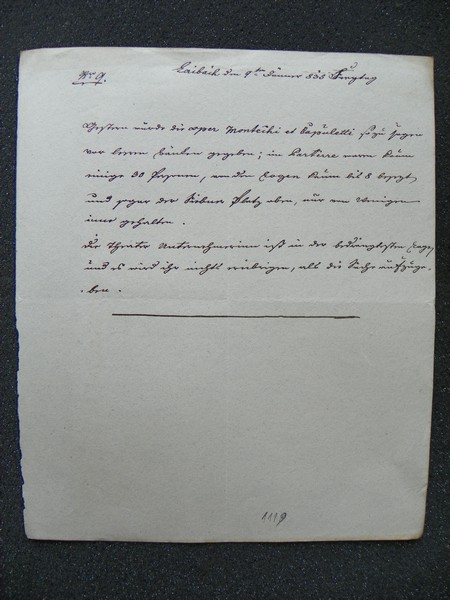 Nr. 9.
Laibach den 9ten Jänner 835 Freytag
Gestern wurde die oper Montechi et Capuletti so zu sagen
vor leeren Bänken gegeben; im Parterre waren kaum
einige 30 Personen, von den Logen kaum bis 8 besezt,
und sogar der Siebner Platz oben, nur von Wenigen
inne gehalten.
Die Theater Unternehmerinn ist in der bedrängtesten Lage,
und es wird ihr nichts erübrigen, als die Sache aufzuge-
ben.
1119